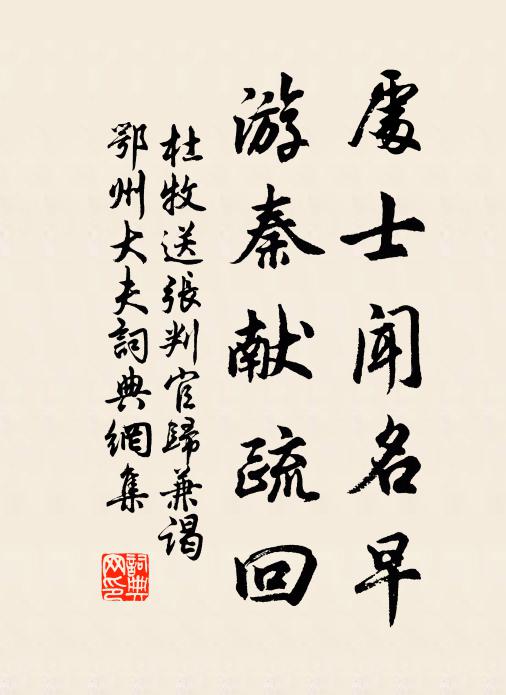 處士聞名早
游秦献疏回
杜牧送張判官歸兼謁
鄂州大夫詞典網集
詞典
网印